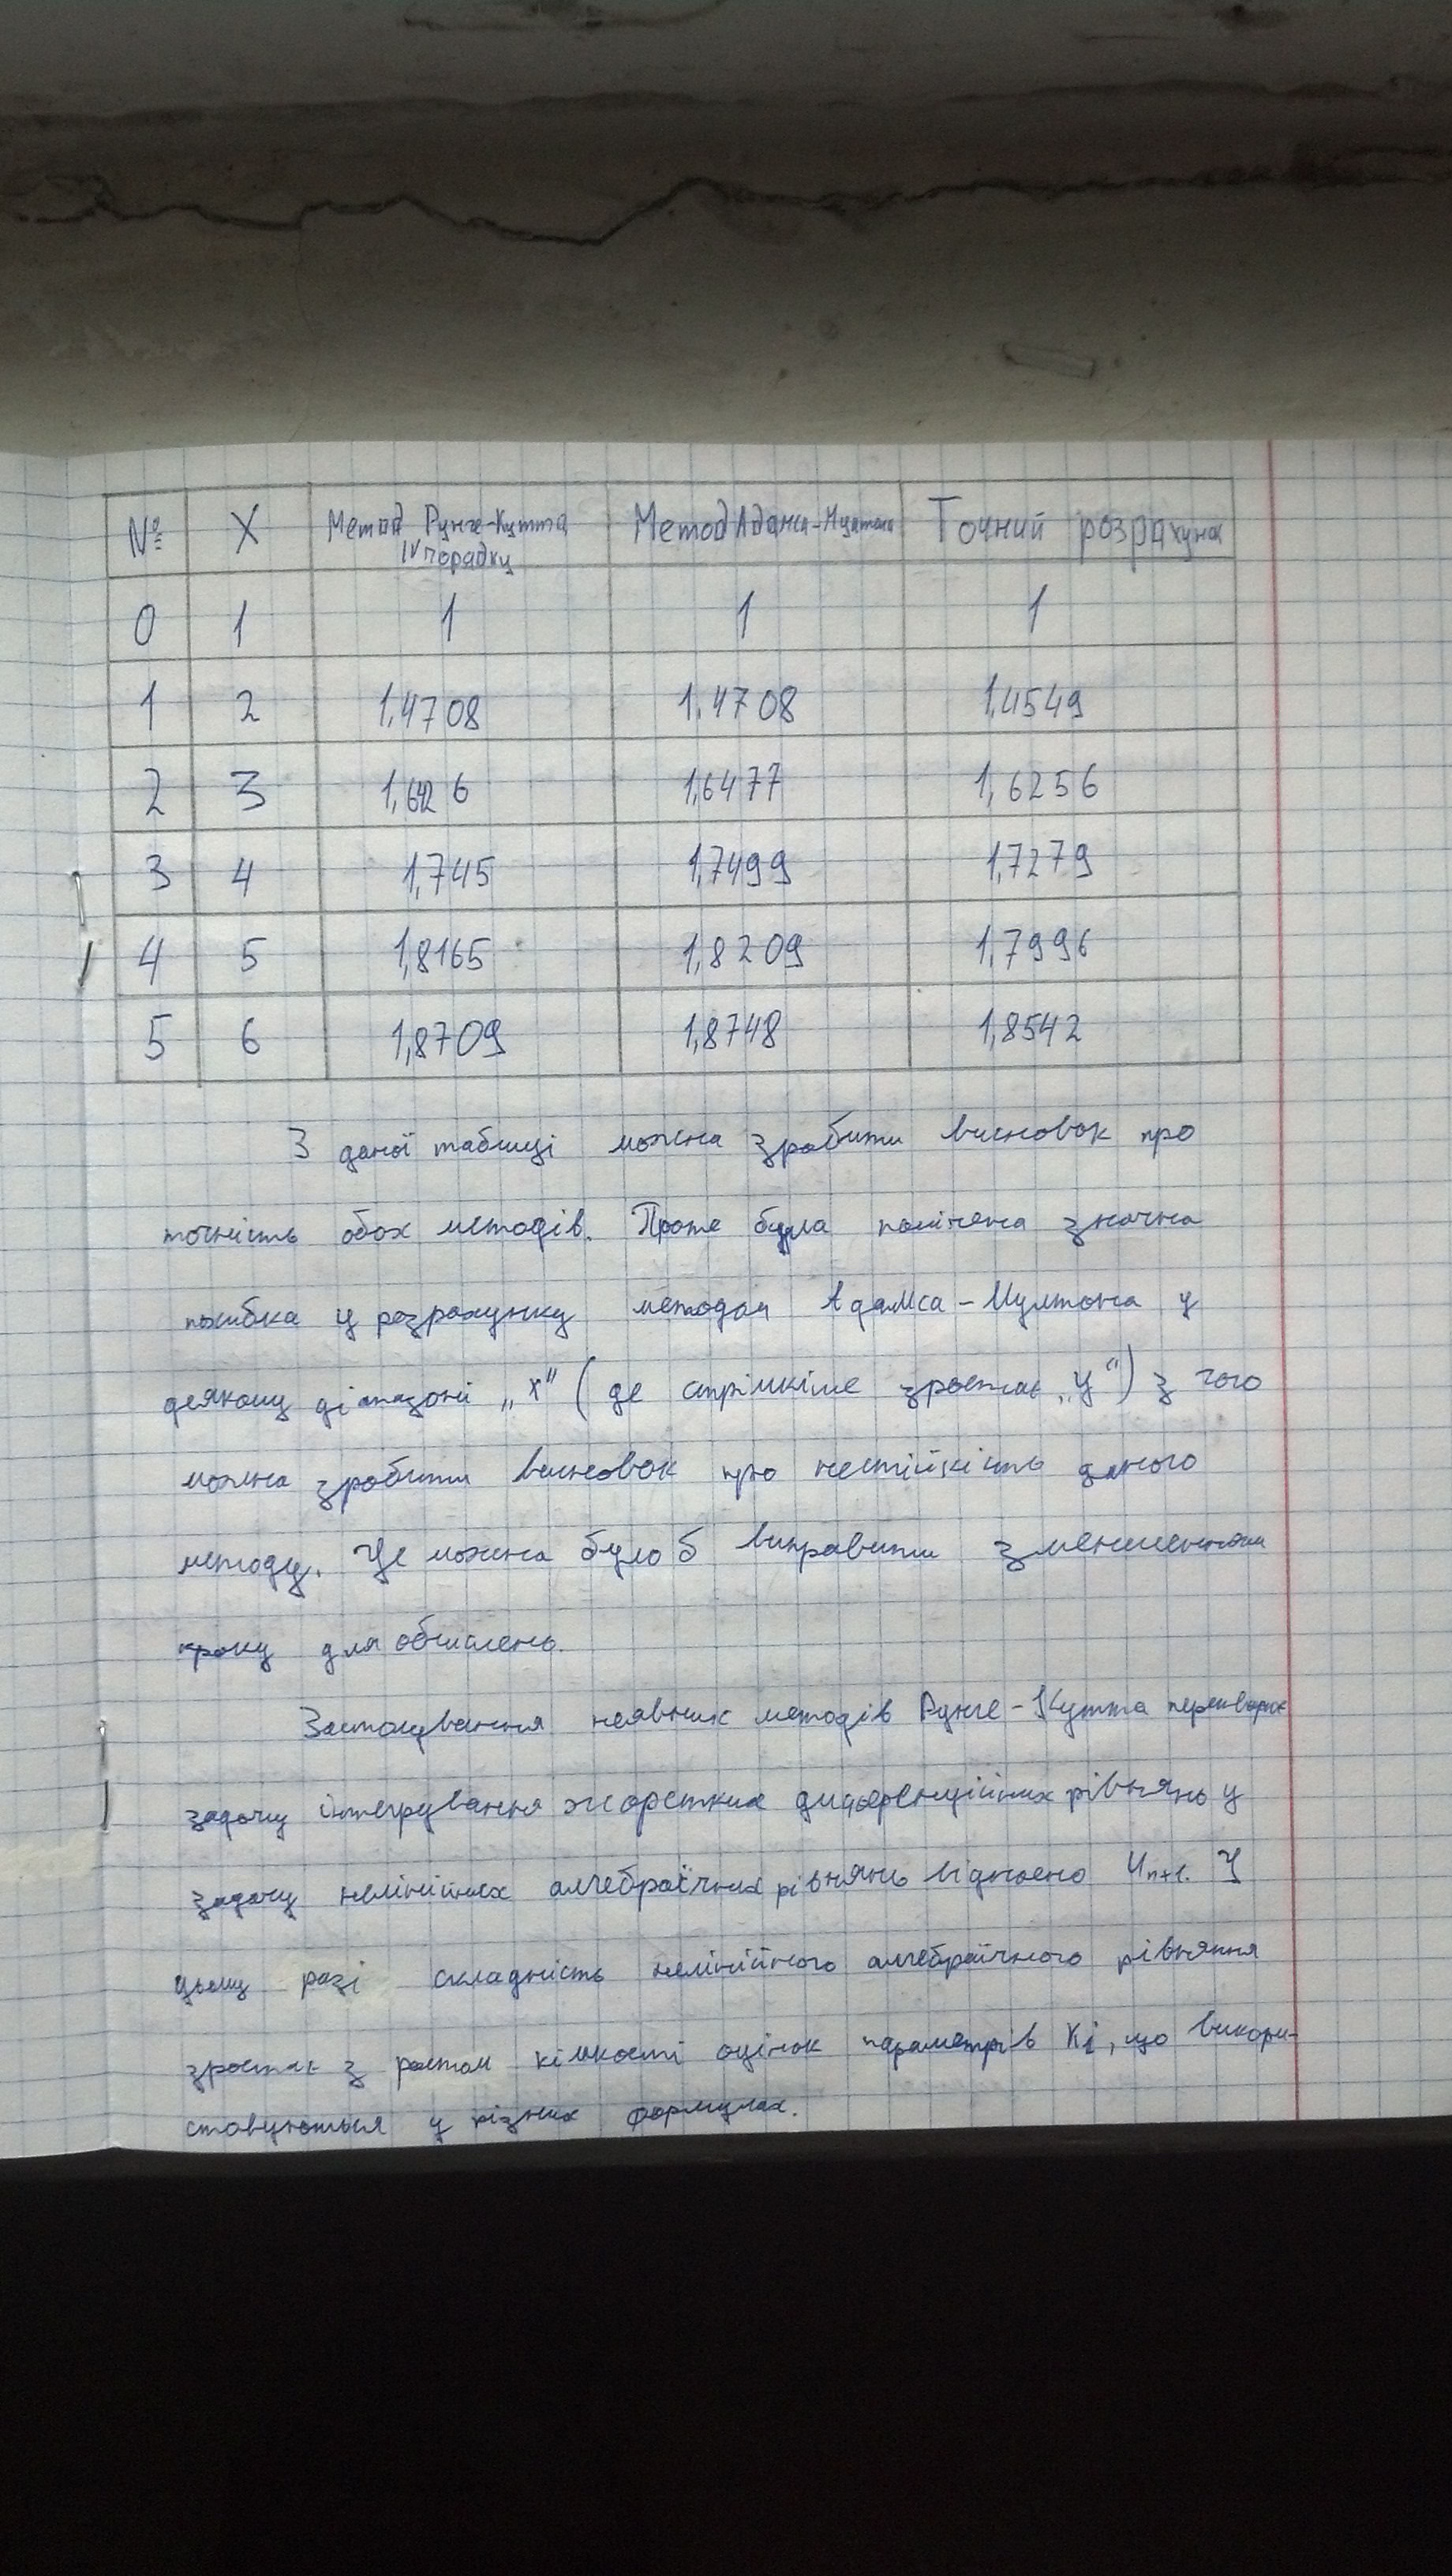 № X Метод Рунге-Кутта IV порядку Метод Адамса-Мултона Точний розрахунок
0 1 1 1 1
1 2 1,4708 1,4708 1,4549
2 3 1,6426 1,6477 1,6256
3 4 1,745 1,7499 1,7279
4 5 1,8165 1,8209 1,7996
5 6 1,8709 1,8748 1,8542
З даної таблиці можна зробити висновок про
точність обох методів. Проте була помічена значна
похибка у розрахунку методом Адамса-Мултона у
деякому діапазоні „x" (де стрімкіше зростає „y") з чого
можна зробити висновок про нестійкість даного
методу. Це можна було б виправити зменшенням
кроку для обчислень.
Застосування неявних методів Рунге-Кутта перетворює
задачу інтегрування жорстких диференційних рівнянь у
задачу нелінійних алгебраїчних рівнянь відносно Un+1. У
цьому разі складність нелінійного алгебраїчного рівняння
зростає з ростом кількості оцінок параметрів Ki, що викори-
стовуються у різних формулах.